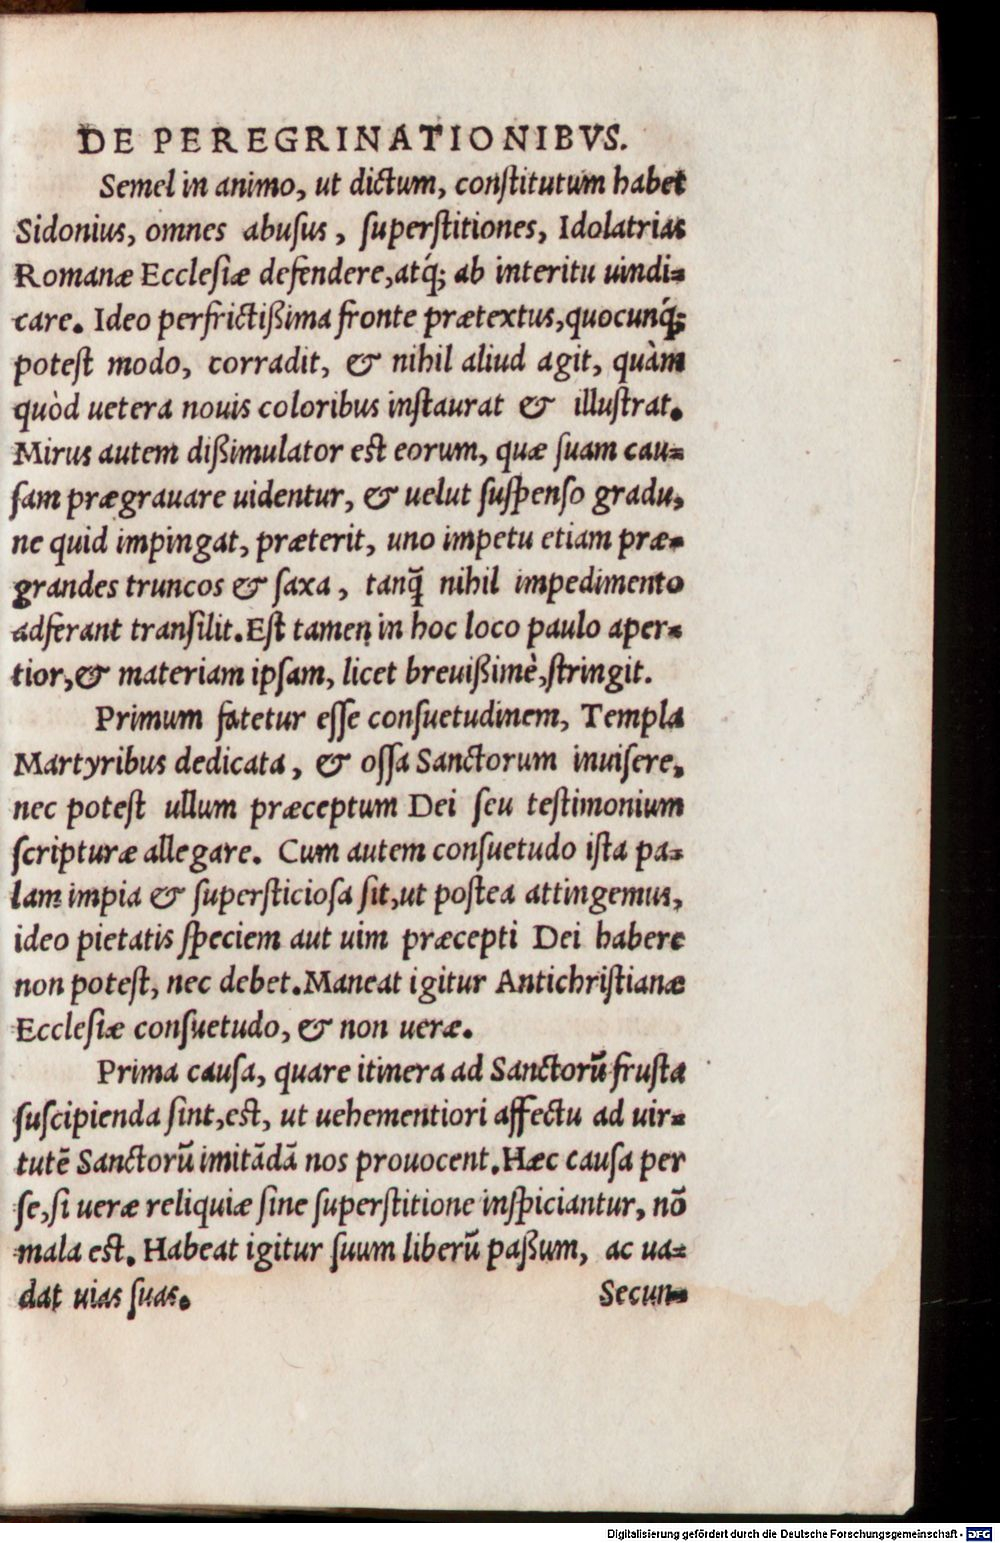 DE PEREGRINATIONIBVS.
Semel in animo, ut dictum, conſtitutum habet
Sidonius, omnes abuſus, ſuperſtitiones, Idolatrias
Romanæ Eccleſiæ defendere, atq́; ab interitu uindi=
care. Ideo perfrictißima fronte prætextus, quocunq́;
poteſt modo, corradit, & nihil aliud agit, quàm
quòd uetera nouis coloribus inſtaurat & illuſtrat.
Mirus autem dißimulator eſt eorum, quæ ſuam cau=
ſam prægrauare uidentur, & uelut ſuſpenſo gradu,
ne quid impingat, præterit, uno impetu etiam præ=
grandes truncos & ſaxa, tanq̃ nihil impedimento
adferant tranſilit. Eſt tamen in hoc loco paulo aper=
tior, & materiam ipſam, licet breuißimè, ſtringit.
Primum fatetur eſſe conſuetudinem, Templa
Martyribus dedicata, & oſſa Sanctorum inuiſere,
nec poteſt ullum præceptum Dei ſeu teſtimonium
ſcripturæ allegare. Cum autem conſuetudo iſta pa=
lam impia & ſuperſticioſa ſit, ut poſtea attingemus,
ideo pietatis ſpeciem aut uim præcepti Dei habere
non poteſt, nec debet. Maneat igitur Antichriſtianæ
Eccleſiæ conſuetudo, & non ueræ.
Prima cauſa, quare itinera ad Sanctorũ fruſta
ſuſcipienda ſint, eſt, ut uehementiori affectu ad uir=
tutẽ Sanctorũ imitãdã nos prouocent. Hæc cauſa per
ſe, ſi ueræ reliquiæ ſine ſuperſtitione inſpiciantur, nõ
mala eſt. Habeat igitur ſuum liberũ paßum, ac ua=
dat uias ſuas.
Secun=
Digitalisierung gefördert durch die Deutsche Forschungsgemeinschaft - DFG